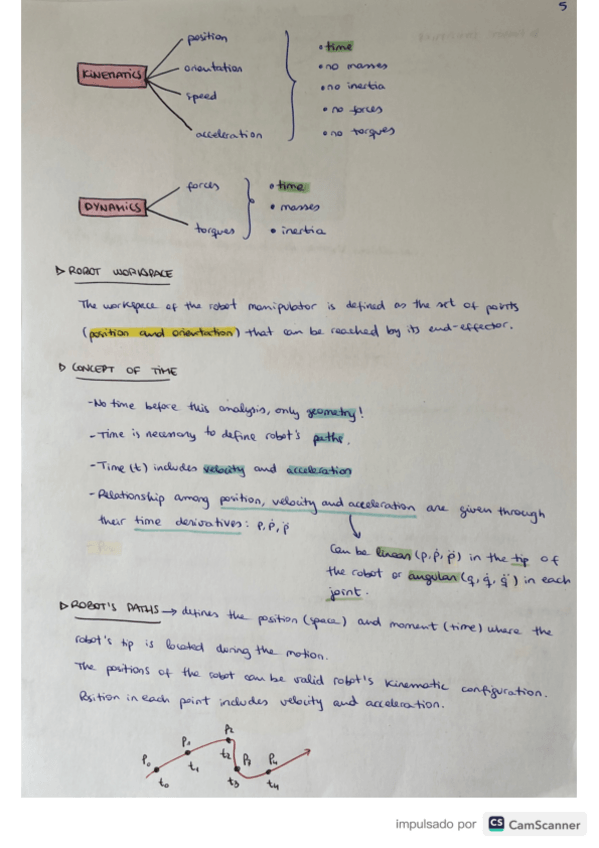 5
KINEMATICS
position
orientation
speed
acceleration
• time
• no masses
• no inertia
• no forces
• no torques
DYNAMICS
forces
torques
• time
• masses
• inertia
▷ ROBOT WORKSPACE
The workspace of the robot manipulator is defined as the set of points
(position and orientation) that can be reached by its end-effector.
▷ CONCEPT OF TIME
-No time before this analysis, only geometry!
-Time is necessary to define robot's paths.
-Time (t) includes velocity and acceleration
-Relationship among position, velocity and acceleration are given through
their time derivatives: p, ṗ, p̈
Can be linear (p, ṗ, p̈) in the tip of
the robot or angular (q, q̇, q̈) in each
joint.
▷ ROBOT'S PATHS → defines the position (space) and moment (time) where the
robot's tip is located during the motion.
The positions of the robot can be valid robot's kinematic configuration.
Position in each point includes velocity and acceleration.
P₀ P₁ P₂ P₃ P₄
t₀ t₁ t₂ t₃ t₄
impulsado por CS CamScanner